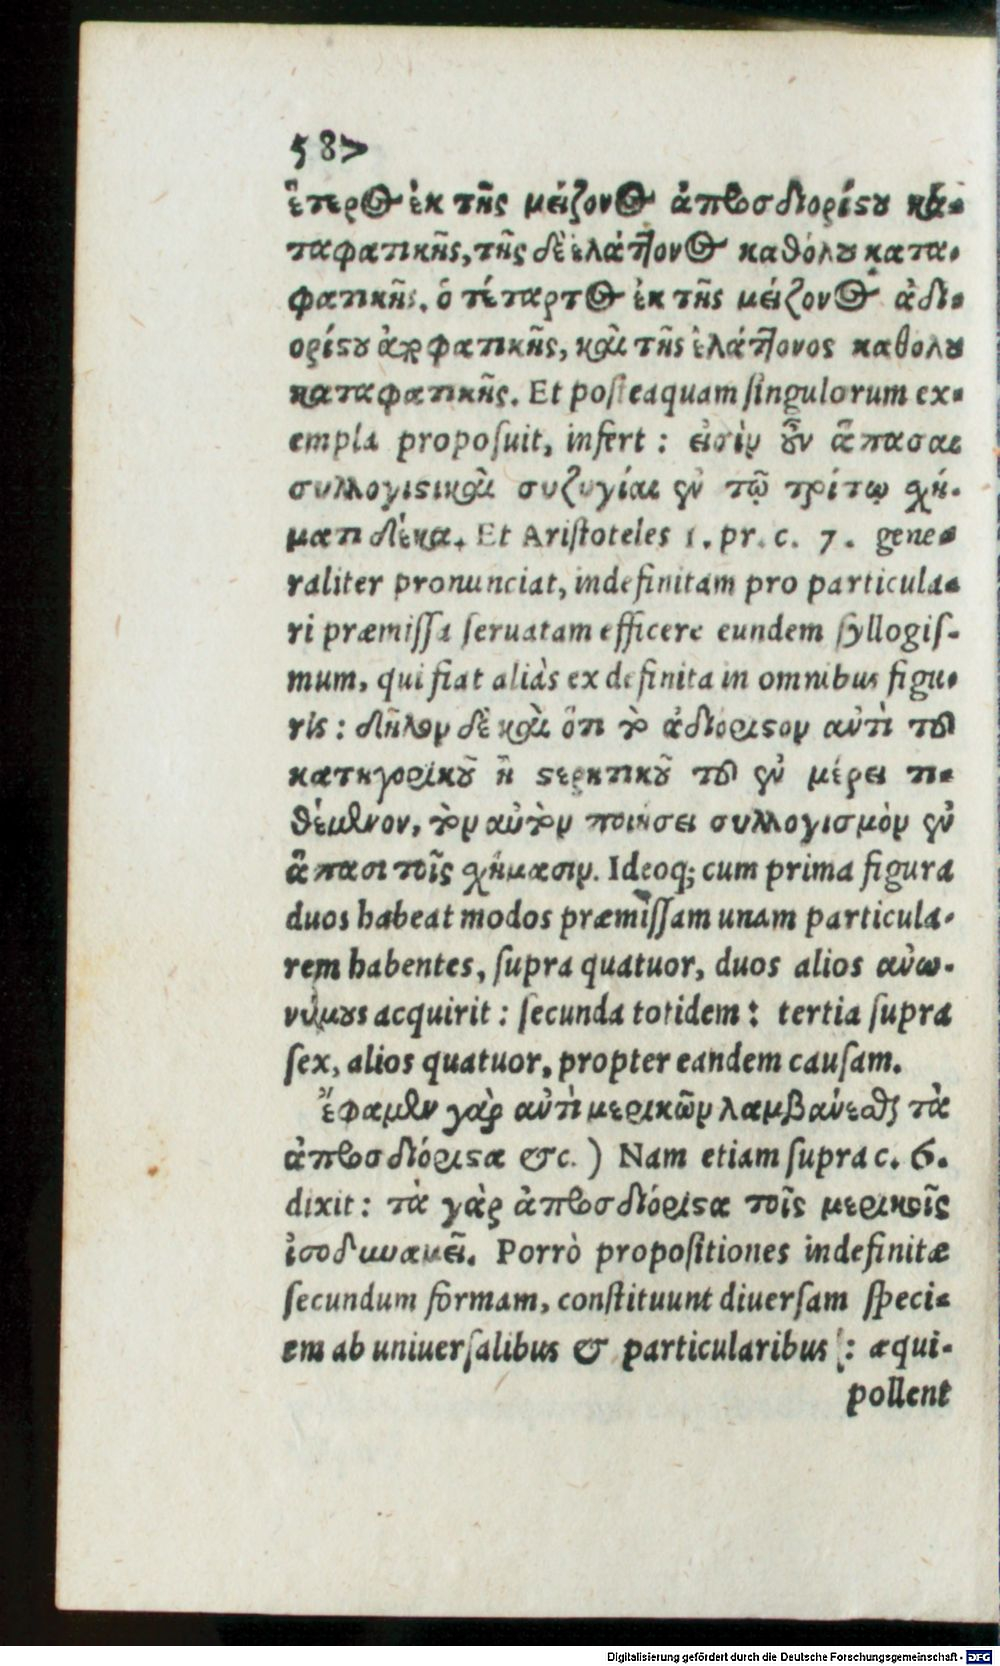 587
ἕτερος ἐκ τῆς μείζονος ἀπροσδιορίστου κα-
ταφατικῆς, τῆς δὲ ἐλάττονος καθόλου κατα-
φατικῆς. ὁ τέταρτος ἐκ τῆς μείζονος ἀδι-
ορίστου ἀποφατικῆς, καὶ τῆς ἐλάττονος καθολου
καταφατικῆς. Et posteaquam singulorum ex-
empla proposuit, infert: εἰσὶν οὖν ἅπασαι
συλλογιστικαὶ συζυγίαι ἐν τῷ τρίτῳ σχή-
ματι δέκα. Et Aristoteles 1. pr. c. 7. gene-
raliter pronunciat, indefinitam pro particula-
ri præmissa seruatam efficere eundem syllogis-
mum, qui fiat aliàs ex definita in omnibus figu-
ris: δῆλον δὲ καὶ ὅτι τὸ ἀδιοριστον αὐτὶ τοῦ
κατηγορικοῦ ἢ στερητικοῦ τοῦ ἐν μέρει τι-
θέμενον, τὸν αὐτὸν ποιήσει συλλογισμὸν ἐν
ἅπασι τοῖς σχήμασιν. Ideoq; cum prima figura
duos habeat modos præmissam unam particula-
rem habentes, supra quatuor, duos alios αὐω-
νύμους acquirit: secunda totidem: tertia supra
sex, alios quatuor, propter eandem causam.
Ἔφαμεν γὰρ αὐτὶ μερικῶν λαμβάνεσθαι τὰ
ἀπροσδιόριστα &c.) Nam etiam supra c. 6.
dixit: τὰ γὰρ ἀπροσδιόριστα τοῖς μερικοῖς
ἰσοδυναμεῖ. Porrò propositiones indefinitæ
secundum formam, constituunt diuersam speci-
em ab uniuersalibus & particularibus: æqui-
pollent
Digitalisierung gefördert durch die Deutsche Forschungsgemeinschaft - DFG